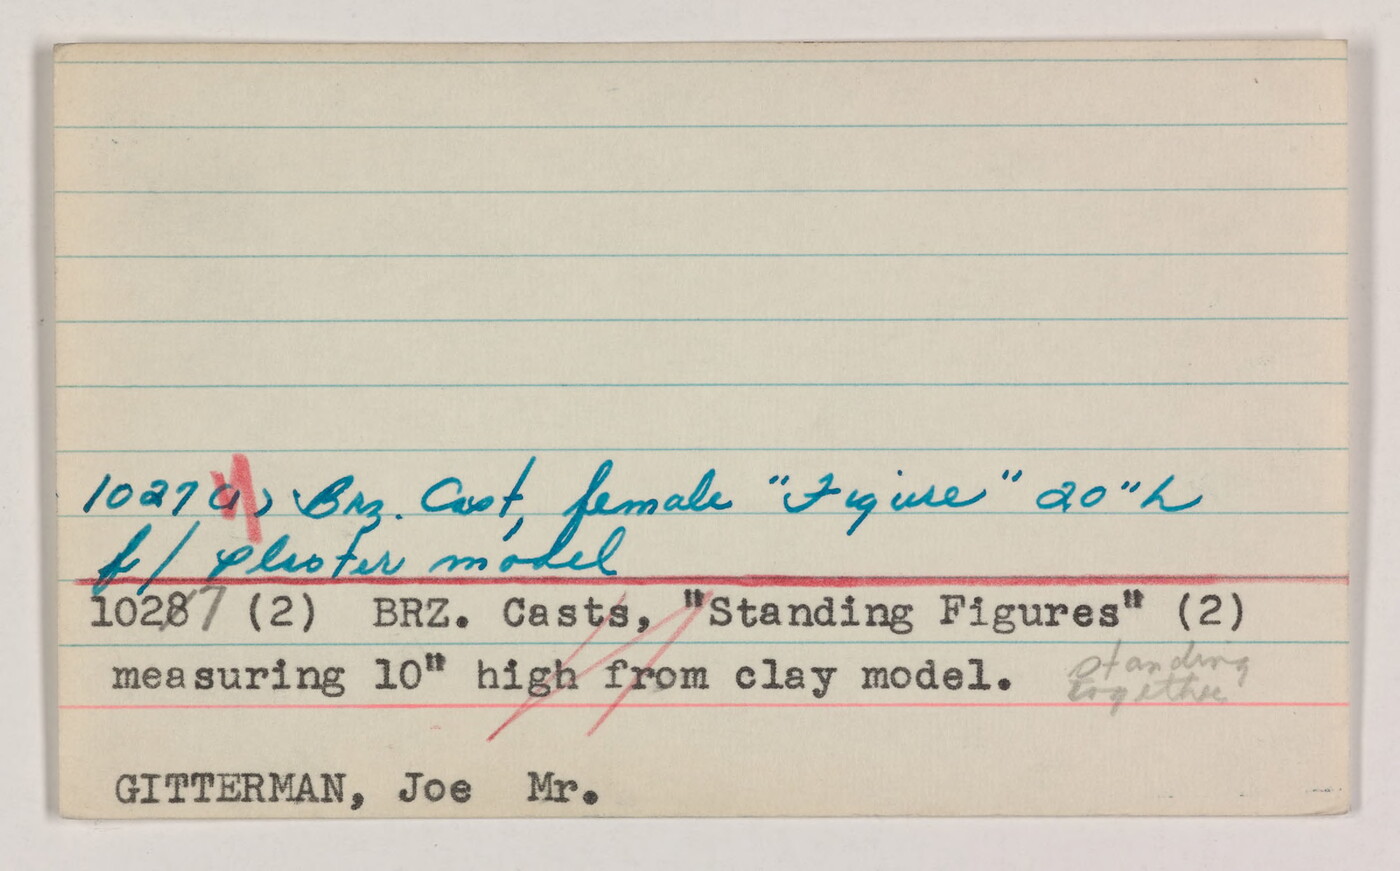 10279) Brz. Cast, female "Figure" 20" h
f/ plaster model
10287 (2) BRZ. Casts, "Standing Figures" (2)
measuring 10" high from clay model. standing
together
GITTERMAN, Joe Mr.